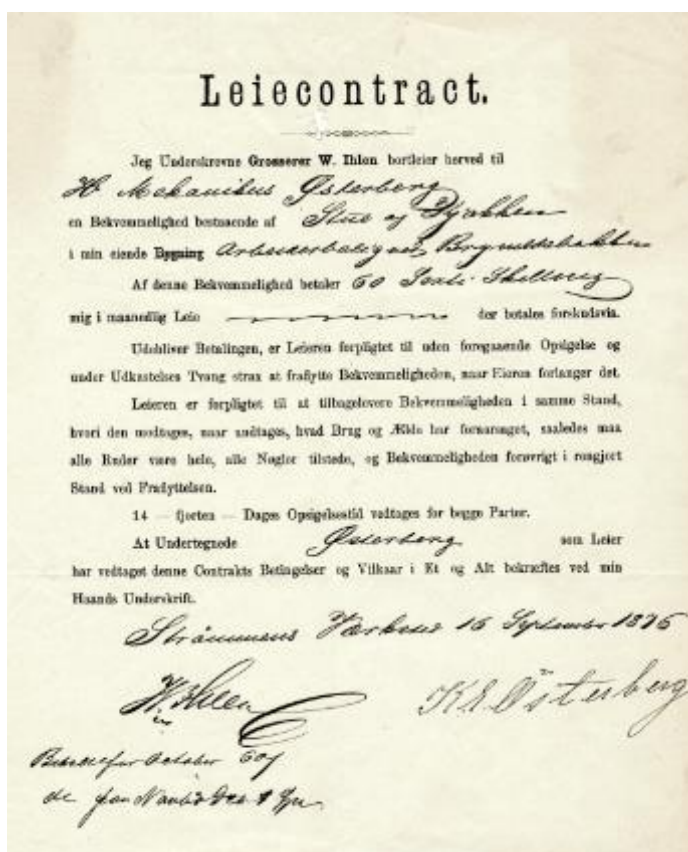 Leiecontract.
Jeg Underskrevne Grosserer W. Ihlen bortleier herved til
Hr Mekanikus Østerberg
en Bekvemmelighed bestaaende af Stue og Kjøkken
i min eiende Bygning Arbeiderbolig ved Brynildsbakken
Af denne Bekvemmelighed betaler 60 Sexti Skilling
mig i maanedlig Leie der betales forskudsvis.
Udebliver Betalingen, er Leieren forpligtet til uden foregaaende Opsigelse og
under Udkastelses Tvang strax at fraflytte Bekvemmeligheden, naar Eieren forlanger det.
Leieren er forpligtet til at tilbagelevere Bekvemmeligheden i samme Stand,
hvori den modtages, naar undtages, hvad Brug og Ælde har foraarsaget, saaledes maa
alle Ruder være hele, alle Nøgler tilstede, og Bekvemmeligheden forøvrigt i rengjort
Stand ved Fraflyttelsen.
14 — fjorten — Dages Opsigelsestid vedtages for begge Parter.
At Undertegnede Østerberg som Leier
har vedtaget denne Contrakts Betingelser og Vilkaar i Et og Alt bekræftes ved min
Haands Underskrift.
Strømmens Værksted 16 September 1876
W. Ihlen
K E Österberg
Betalt for October 60
de for